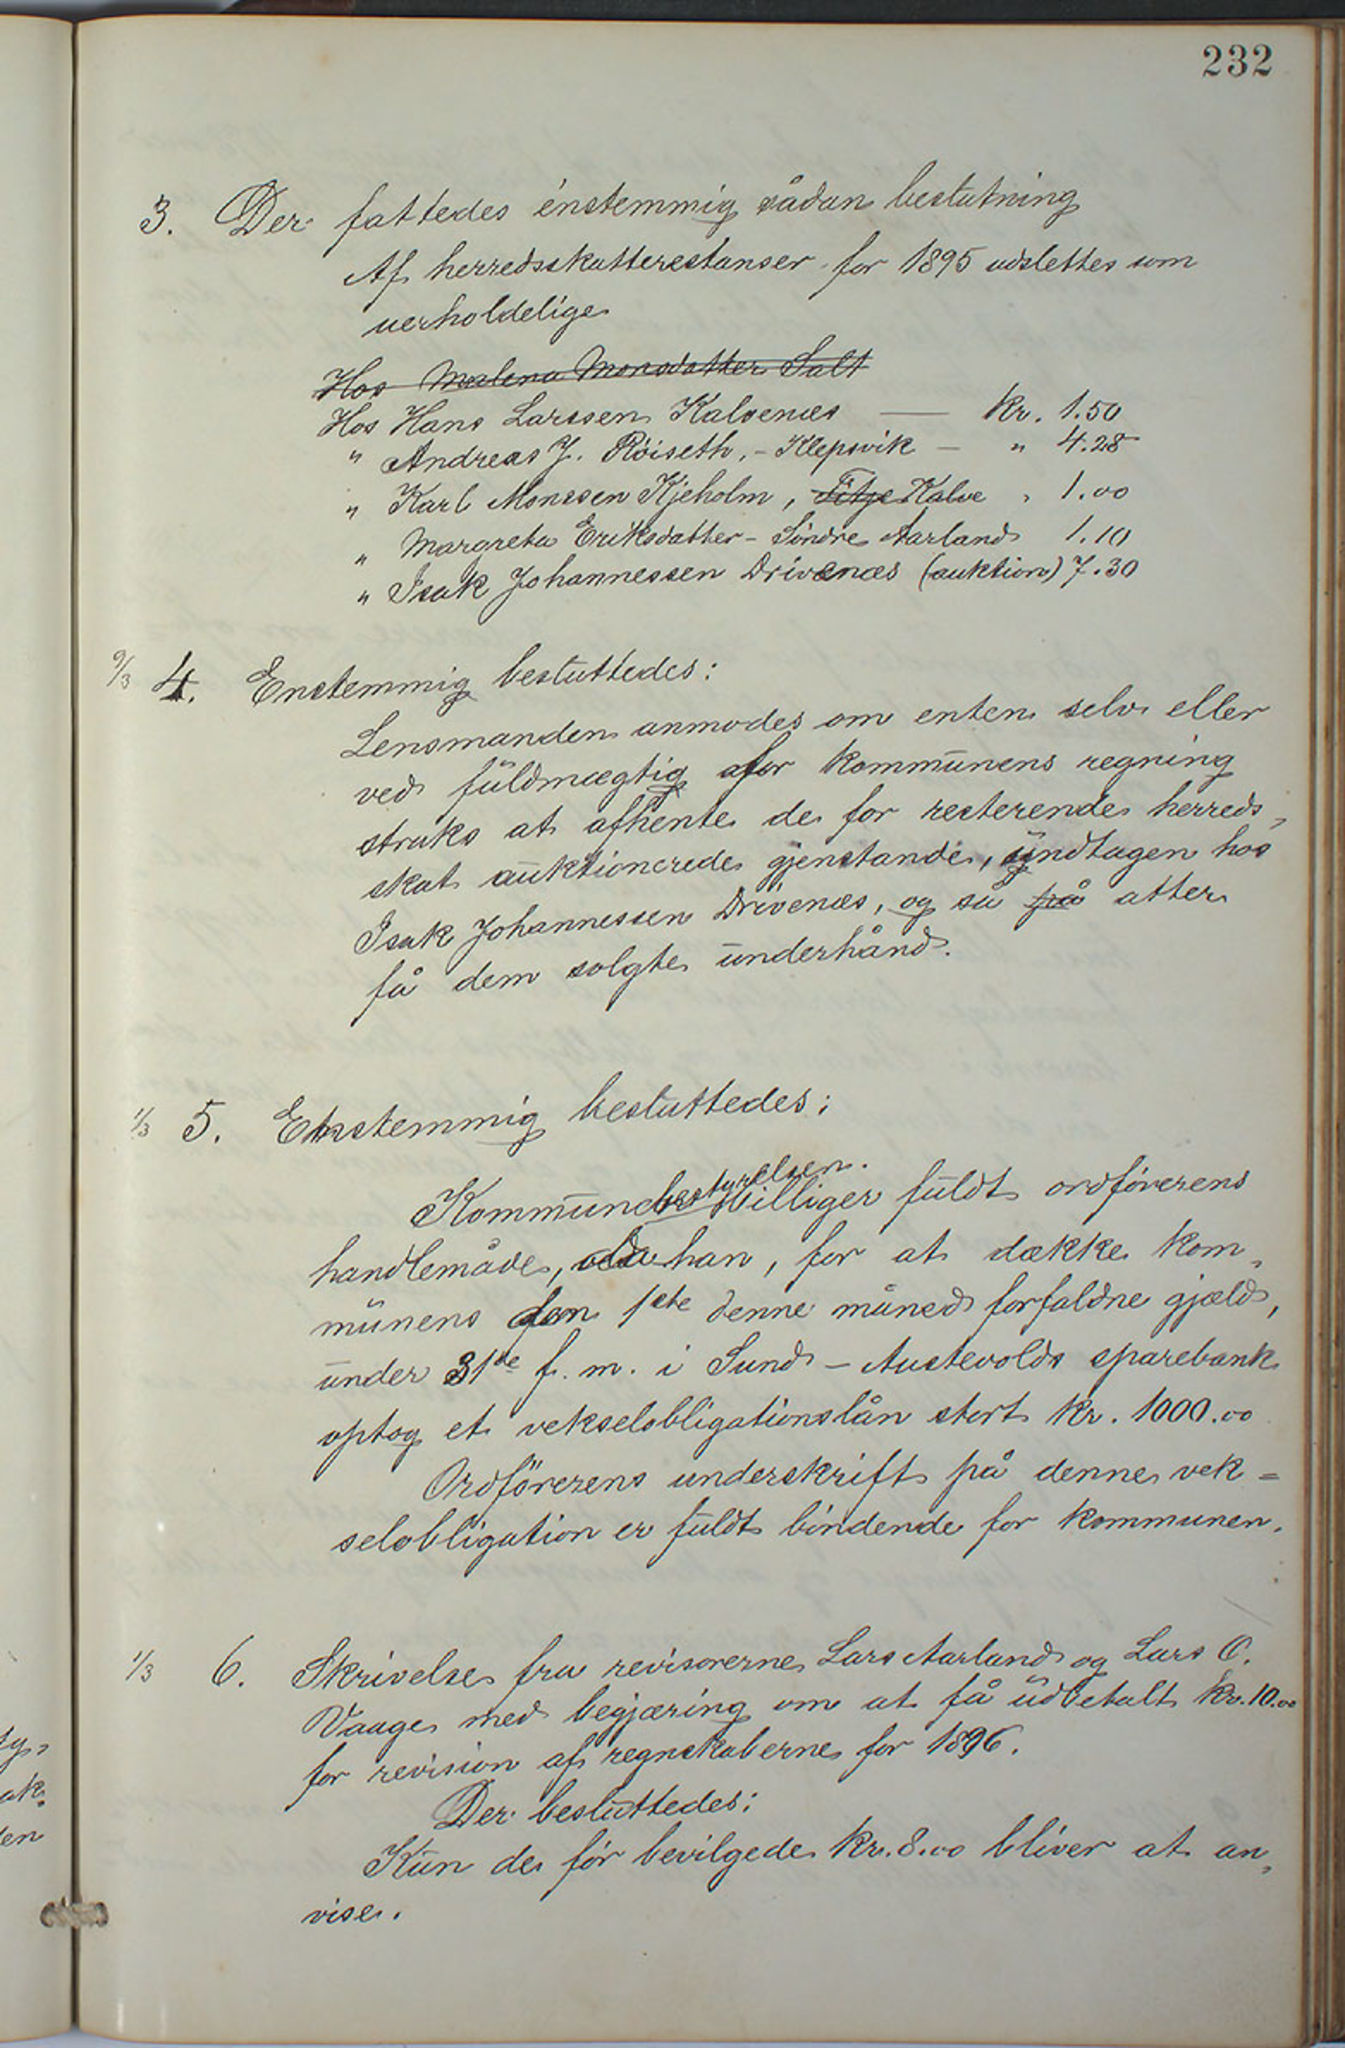 232
3. Der fattedes énstemmig sådan beslutning
Af herredsskatterestanser for 1895 udslettes som
uerholdelige
Hos Malena Monsdatter Salt
Hos Hans Larssen Kalvenæs — kr. 1.50
" Andreas J. Röiseth, - Klepsvik - " 4.28
" Karl Monssen Kjeholm, Fitje Kalve " 1.00
" Margreta Eriksdatter - Söndre Aarland 1.10
" Isak Johannessen Drivenæs (auktion) 7.30
9/3 4. Enstemmig besluttedes:
Lensmanden anmodes om enten selv eller
ved fuldmægtig for kommunens regning
straks at afhente de for resterende herreds-
skat auktionerede gjenstande, undtagen hos
Isak Johannessen Drivenæs, og så på atter
få dem solgte underhånd.
1/3 5. Enstemmig besluttedes:
Kommunebestyrelsen billiger fuldt ordförerens
handlemåde, da han, for at dække kom-
munens den 1ste denne måned forfaldne gjæld,
under 31de f. m. i Sund - Austevolds sparebank
optog et vekselobligationslån stort kr. 1000.00
Ordförerens underskrift på denne vek=
selobligation er fuldt bindende for kommunen.
1/3 6. Skrivelse fra revisorerne Lars Aarland og Lars O.
Vaage med begjæring om at få udbetalt kr. 10.00
for revision af regnskaberne for 1896.
Der besluttedes:
Kun de för bevilgede kr. 8.00 bliver at an-
vise.
ty,
ak.
en